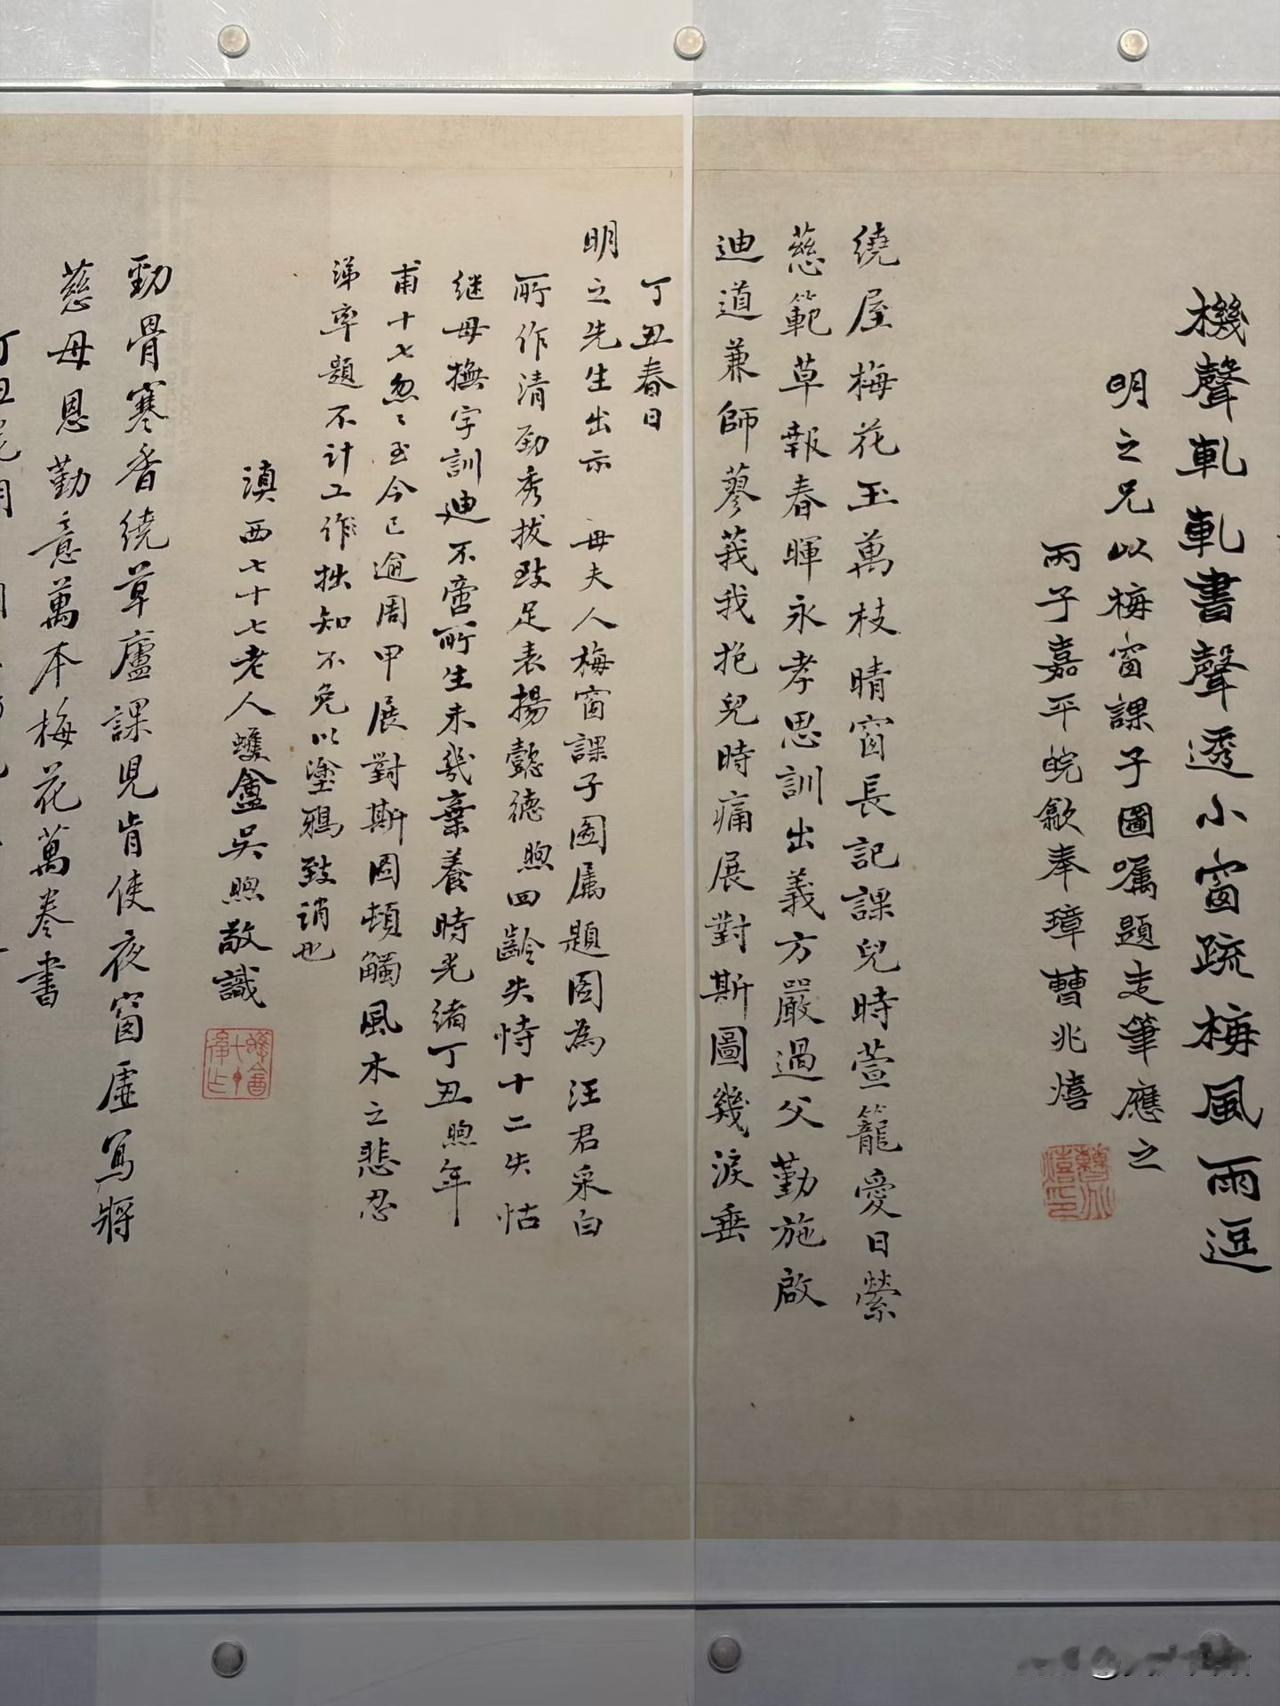 機聲軋軋書聲透小窗疏梅風雨逗
明之兄以梅窗課子圖囑題走筆應之
丙子嘉平皖歙奉璋曹兆熺
繞屋梅花玉萬枝晴窗長記課兒時萱籠愛日縈
慈範草報春暉永孝思訓出義方嚴過父勤施啟
迪道兼師蓼莪我抱兒時痛展對斯圖幾淚垂
丁丑春日
明之先生出示 毋夫人梅窗課子圖属題圖為汪君采白
所作清勁秀拔致足表揚懿德煦四齡失恃十二失怙
继母撫字訓迪不啻所生未幾棄養時光緒丁丑煦年
甫十七忽〻至今已逾周甲展對斯圖頓觸風木之悲忍
涕率題不计工作拙知不免以塗鴉致誚也
滇西七十七老人蠖盦吴煦敬識
勁骨寒香繞草廬課兒肯使夜窗虛写將
慈母恩勤意萬本梅花萬卷書
丁丑